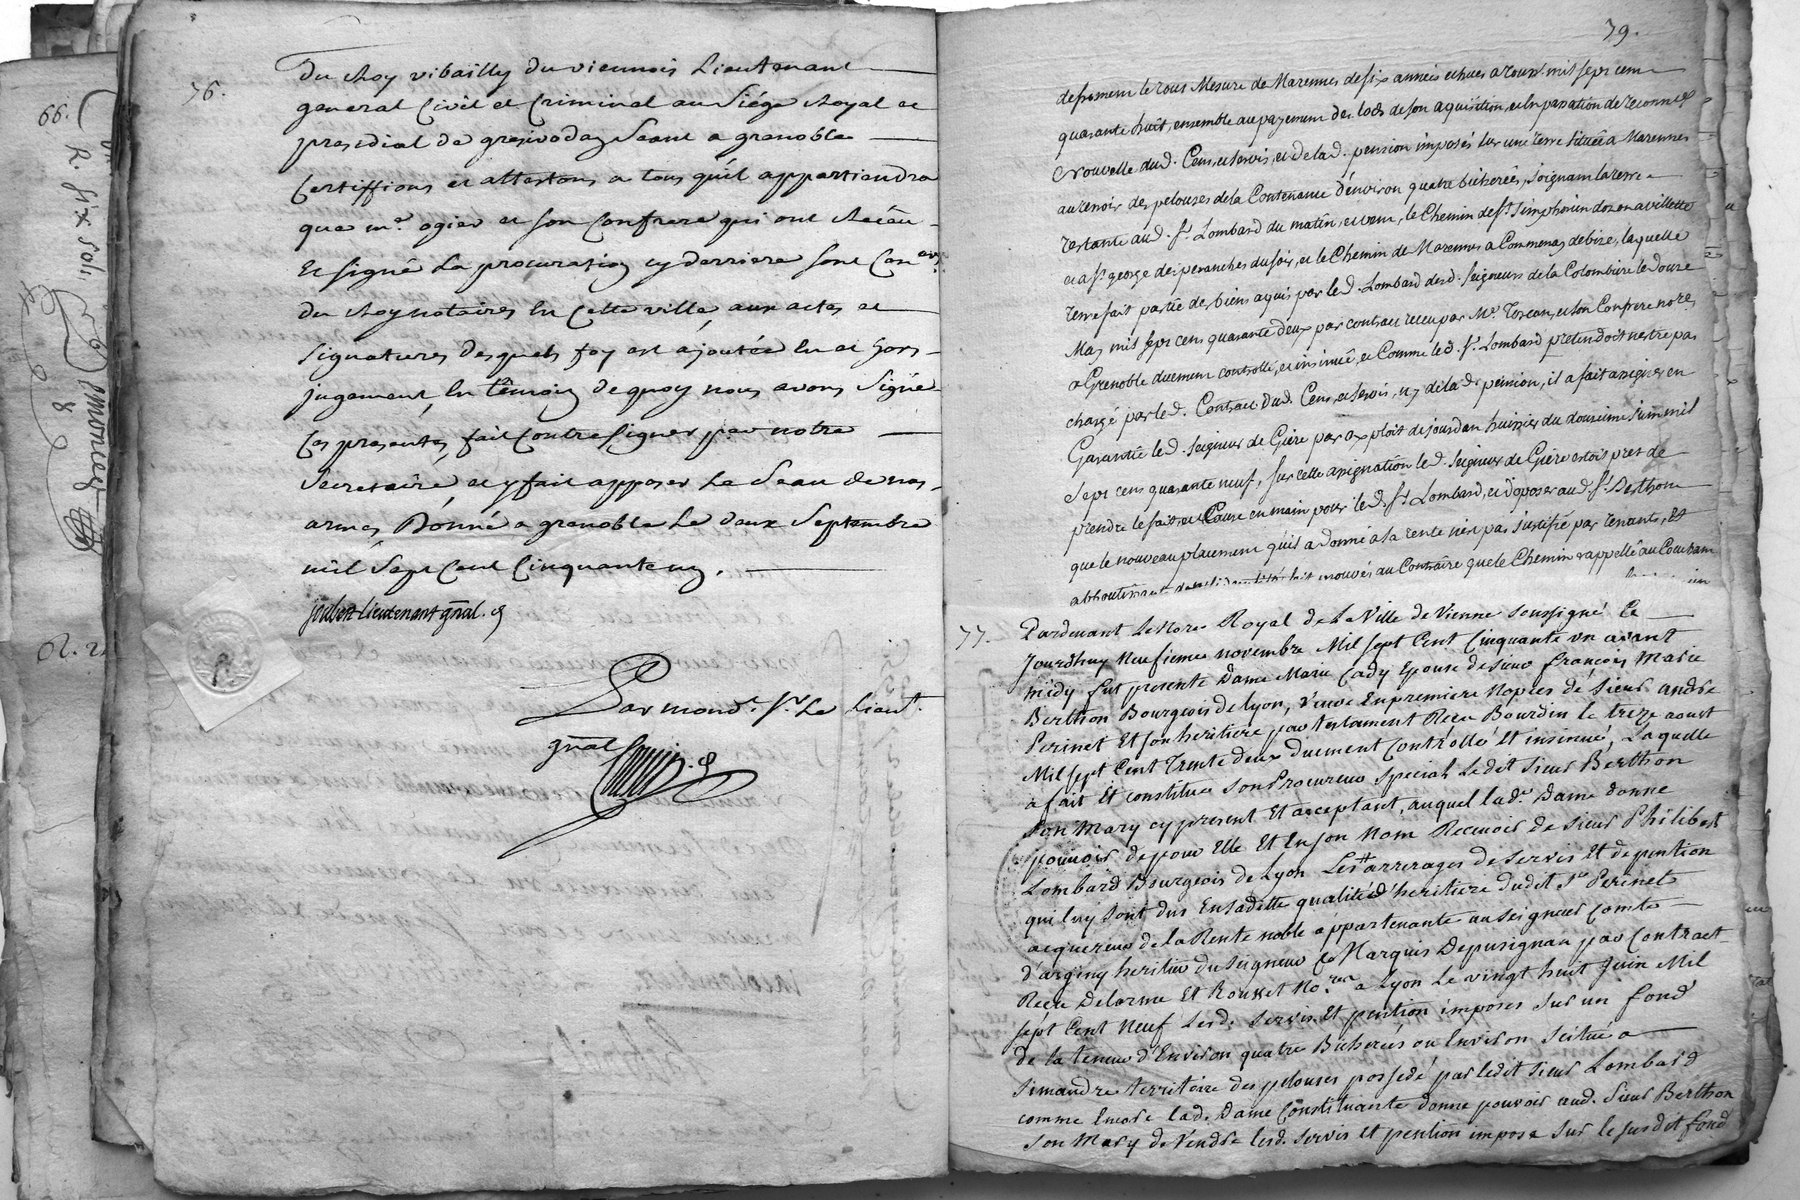 66.
76.
Du Roy vibailly du viennois Lieutenant
general Civil et Criminel au Siége Royal et
presidial de gresivodan Seant a grenoble
Certiffions et attestons a tous qu'il appartiendra
que me. ogier et son Confrere qui ont Recêu
Et signé La procuration cy derriere sont Con.ers
du Roy notaires En Cette ville, aux actes et
signatures desquels foy est ajoutée En et hors
jugement, En têmoin de quoy nous avons Signé
Ces presentes, fait Contresigner par notre
Secretaire, et y fait apposer Le Seau de nos
armes, Donné a grenoble Le deux Septembre
mil Sept Cent Cinquante un.
joubert lieutenant gnal.
Par mond. Sr. Le Lieut.
gnal
79.
de froment le tous Mesure de Marennes de six années echues a toust. mil sept cent
quarante huit, ensemble au payement des lods de son aquisition, et En passation de reconnce
Nouvelle dud. Cens, et servis, et de lad. pension imposés sur une terre située a Marennes
au terroir des pelouses de la Contenance d'environ quatre bicherées, joignant la terre
restante aud. Sr. Lombard du matin, et vent, le Chemin de St. simphorien dozon a villette
et a St. george desperanches du soir, et le Chemin de Marennes a Communay de bize, laquelle
terre fait partie des biens aquis par led. Lombard desd. seigneurs de la Colombiere le douze
May mil sept cens quarante deux par contract receu par Me. Toscan, et son Confrere nores.
a Grenoble duement controllé, et insinué, et Comme led. Sr. Lombard pretendoit n'estre pas
chargé par led. Contract dud. Cens, et servis, ny de lad. pension, il a fait assigner en
Garantie led. seigneur de Giere par exploit de jourdan huissier du douzieme juin mil
sept cens quarante neuf, sur cette assignation led. seigneur de Giere estoit prest de
prendre le fait, et Cause en main pour led. Sr. Lombard, et d'oposer aud. Sr. Berthon
que le nouveau placement qu'il a donné a la rente n'est pas justifié par tenants, Et
77.
Pardevant Le Nore Royal de La Ville de Vienne soussigné Ce
Jourdhuy Neufieme novembre Mil sept Cent Cinquante un avant
midy fut presente Dame Marie Cady Epouse de sieur françois Marie
Berthon Bourgeois de lyon, veuve En premiere Nopces de Sieur andre
Perinet Et son heritiere par testament Reçu Bourdin le treze aoust
Mil sept Cent Trente deux duement Contrôllé Et insinué, Laquelle
a fait Et constitue son Procureur special Ledit Sieur Berthon
son Mary cy present Et acceptant, auquel lade. Dame donne
pouvoir de pour Elle Et En son Nom Recevoir de sieur Philibert
Lombard Bourgeois de Lyon Les arrerages de servis Et de pention
qui luy sont dus En sadette qualité d'heritiere dudit Sr Perinet
acquereur de la Rente noble appartenante au seigneur Comte
d'arginy heritier du seigneur Marquis Depusignan par Contract
Reçu Delorme Et Rousset No.res a Lyon Le vingt huit Juin Mil
sept Cent Neuf Lesd. servis Et pention imposés sur un fond
de la teneur d'Environ quatre Bicherées ou Environ scitué a
simandre territoire des pelouses possedé par ledit sieur Lombard
comme Encore lad. Dame Constituante donne pouvoir aud. Sieur Berthon
son Mary de Vendre lesd. servis Et pention imposé sur le susdit fond